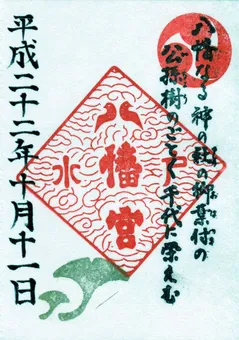 八幡なる神の社の御葉付の
公孫樹のごとく千代に栄えむ
八幡宮
水
平成二十二年十月十一日